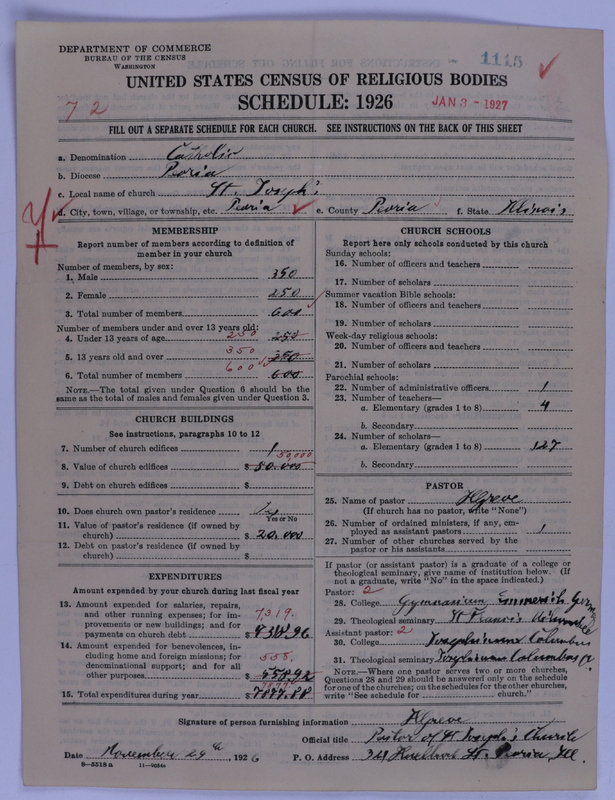 DEPARTMENT OF COMMERCE
BUREAU OF THE CENSUS
WASHINGTON
1115
UNITED STATES CENSUS OF RELIGIOUS BODIES
72
SCHEDULE: 1926
JAN 3 - 1927
FILL OUT A SEPARATE SCHEDULE FOR EACH CHURCH. SEE INSTRUCTIONS ON THE BACK OF THIS SHEET
a. Denomination Catholic
b. Diocese Peoria
c. Local name of church St. Joseph's
d. City, town, village, or township, etc. Peoria e. County Peoria f. State Illinois
MEMBERSHIP
Report number of members according to definition of
member in your church
Number of members, by sex:
1. Male 350
2. Female 250
3. Total number of members 600
Number of members under and over 13 years old:
250
4. Under 13 years of age 250
350
5. 13 years old and over 350
600
6. Total number of members 600
NOTE.—The total given under Question 6 should be the
same as the total of males and females given under Question 3.
CHURCH BUILDINGS
See instructions, paragraphs 10 to 12
7. Number of church edifices 1
50,000
8. Value of church edifices $ 50.000
9. Debt on church edifices $
10. Does church own pastor's residence Yes
Yes or No
11. Value of pastor's residence (if owned by
church) $ 20.000
12. Debt on pastor's residence (if owned by
church) $
EXPENDITURES
Amount expended by your church during last fiscal year
13. Amount expended for salaries, repairs,
and other running expenses; for im-
7319.
provements or new buildings; and for
payments on church debt $
14. Amount expended for benevolences,
including home and foreign missions; for
558.
denominational support; and for all
other purposes $ 558.92
15. Total expenditures during year $ 7877.88
CHURCH SCHOOLS
Report here only schools conducted by this church
Sunday schools:
16. Number of officers and teachers
17. Number of scholars
Summer vacation Bible schools:
18. Number of officers and teachers
19. Number of scholars
Week-day religious schools:
20. Number of officers and teachers
21. Number of scholars
Parochial schools:
22. Number of administrative officers 1
23. Number of teachers—
a. Elementary (grades 1 to 8) 4
b. Secondary
24. Number of scholars—
a. Elementary (grades 1 to 8) 127
b. Secondary
PASTOR
25. Name of pastor HGreve
(If church has no pastor, write "None")
26. Number of ordained ministers, if any, em-
ployed as assistant pastors 1
27. Number of other churches served by the
pastor or his assistants
If pastor (or assistant pastor) is a graduate of a college or
theological seminary, give name of institution below. (If
not a graduate, write "No" in the space indicated.)
Pastor: 2
28. College Gymnasium Emmerich Germany
29. Theological seminary St Francis Milwaukee
Assistant pastor: 2
30. College Josephinum Columbus
31. Theological seminary Josephinum Columbus O.
NOTE.—Where one pastor serves two or more churches,
Questions 28 and 29 should be answered only on the schedule
for one of the churches; on the schedules for the other churches,
write "See schedule for church."
Signature of person furnishing information HGreve
Official title Pastor of St Joseph's Church
Date November 29th, 1926 P. O. Address St. Peoria Ill.
8—5518 a